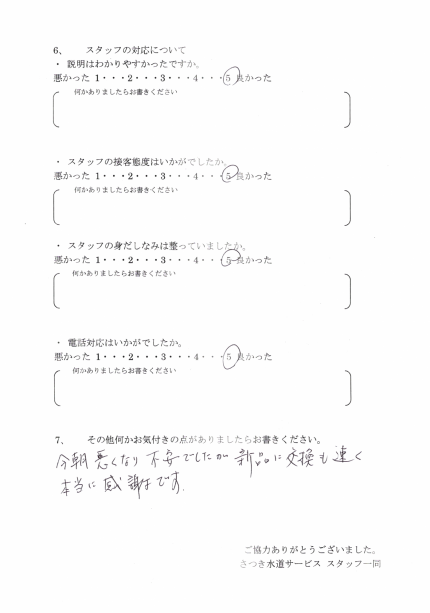 6、 スタッフの対応について
・ 説明はわかりやすかったですか。
悪かった 1・・・2・・・3・・・4・・・5 良かった
何かありましたらお書きください
・ スタッフの接客態度はいかがでしたか。
悪かった 1・・・2・・・3・・・4・・・5 良かった
何かありましたらお書きください
・ スタッフの身だしなみは整っていましたか。
悪かった 1・・・2・・・3・・・4・・・5 良かった
何かありましたらお書きください
・ 電話対応はいかがでしたか。
悪かった 1・・・2・・・3・・・4・・・5 良かった
何かありましたらお書きください
7、 その他何かお気付きの点がありましたらお書きください。
今朝悪くなり不安でしたが新品に交換も速く
本当に感謝です.
ご協力ありがとうございました。
さつき水道サービス スタッフ一同